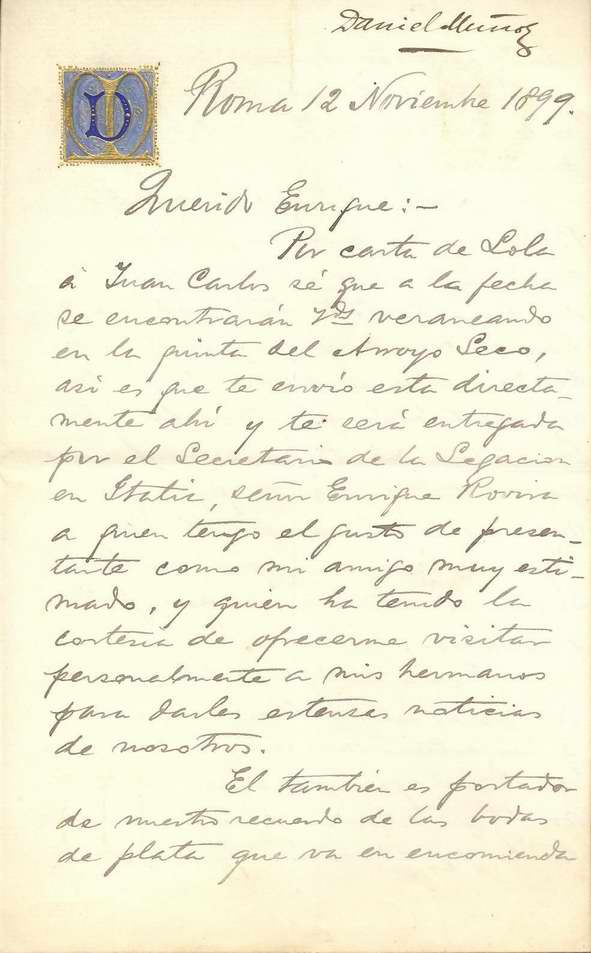 Daniel Muñoz
D
Roma 12 Noviembre 1899.
Querido Enrique:-
Por carta de Lola
á Juan Carlos sé que a la fecha
se encontrarán Vds veraneando
en la quinta del Arroyo Seco,
asi es que te envío esta directa-
mente ahí y te será entregada
por el Secretario de la Legacion
en Italia, señor Enrique Rovira
a quien tengo el gusto de presen-
tarte como mi amigo muy esti-
mado, y quien ha tenido la
cortesia de ofrecerme visitar
personalmente a mis hermanos
para darles estensas noticias
de nosotros.
El también es portador
de nuestro recuerdo de las bodas
de plata que va en encomienda